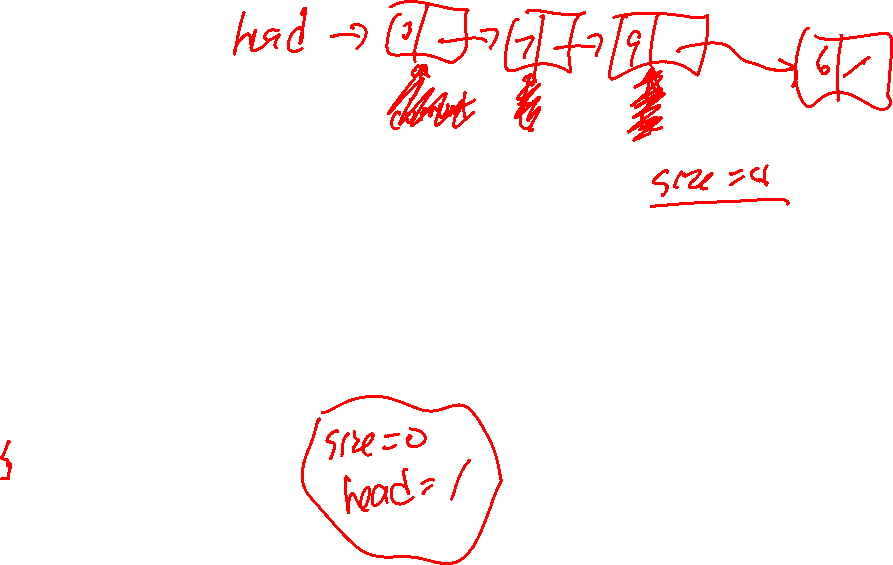 head → 7 9 6 /
size = 4
size = 0
head = /